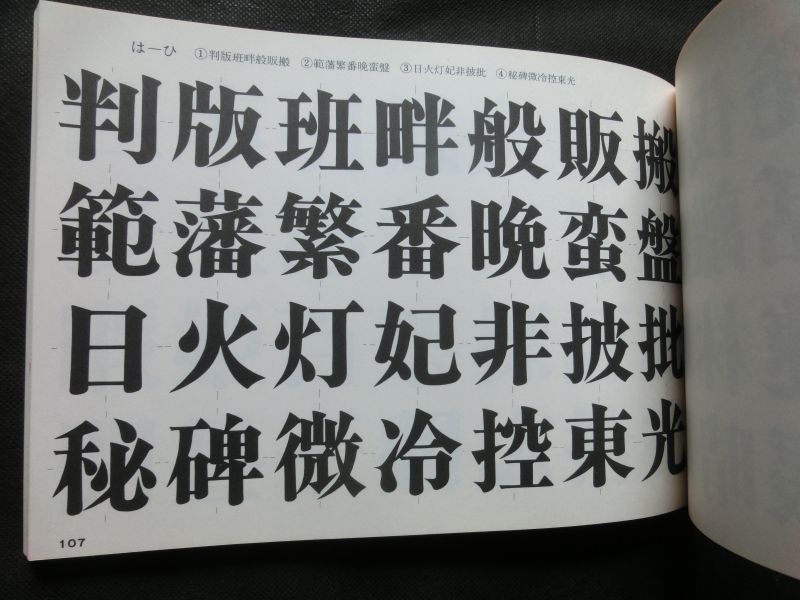 はーひ ①判版班畔般販搬 ②範藩繁番晩蛮盤 ③日火灯妃非披批 ④秘碑微冷控東光
判版班畔般販搬
範藩繁番晩蛮盤
日火灯妃非披批
秘碑微冷控東光
107